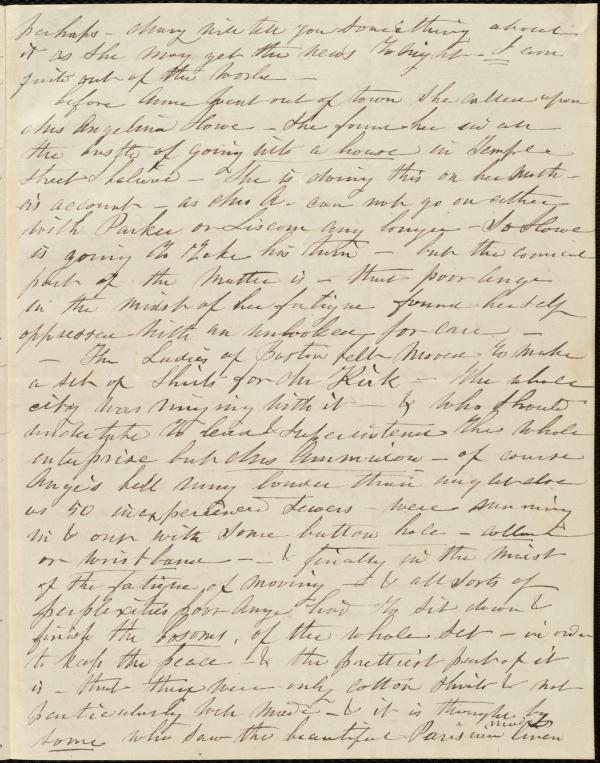 perhaps - Mary will tell you something about
it as she may get the news tonight - I am
quite out of the world -
before Anne went out of town she called upon
Mrs Angelina Howe - She found her in all
the bustle of going into a house in Temple
Street I believe - She is doing this on her
account - as Mrs A. can not go on either
with Parker or Liscom any longer - So Howe
is going to take his turn - but the comical
part of the matter is - that poor Ange
in the midst of her fatigue found herself
oppressed with an unlooked for care -
- The Ladies of Boston felt moved to make
a set of Shirts for Mr Kirk - the whole
city was ringing with it - & who should
undertake to lead & superintend the whole
enterprise but Mrs - of course
Ange's bell rung louder than any body else
as 50 inexperienced Sewers - were running
in & out with some button hole - collar
or wristband - - & finally in the midst
of the fatigue of moving - & all sorts of
perplexities poor Ange had to sit down &
finish the bosoms, of the whole set - in order
to keep the peace - & the prettiest part of it
is - that they were only cotton shirts & not
particularly well made - & it is thought by
some who saw the beautiful Parisian linen